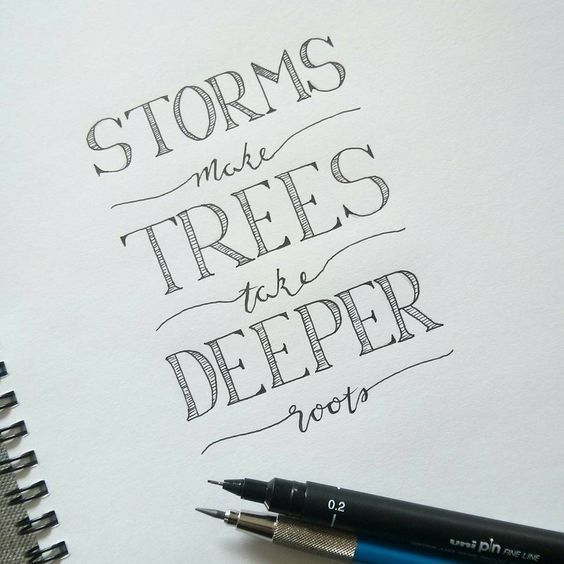 STORMS
make
TREES
take
DEEPER
roots
0.2
uni pin FINE LINE